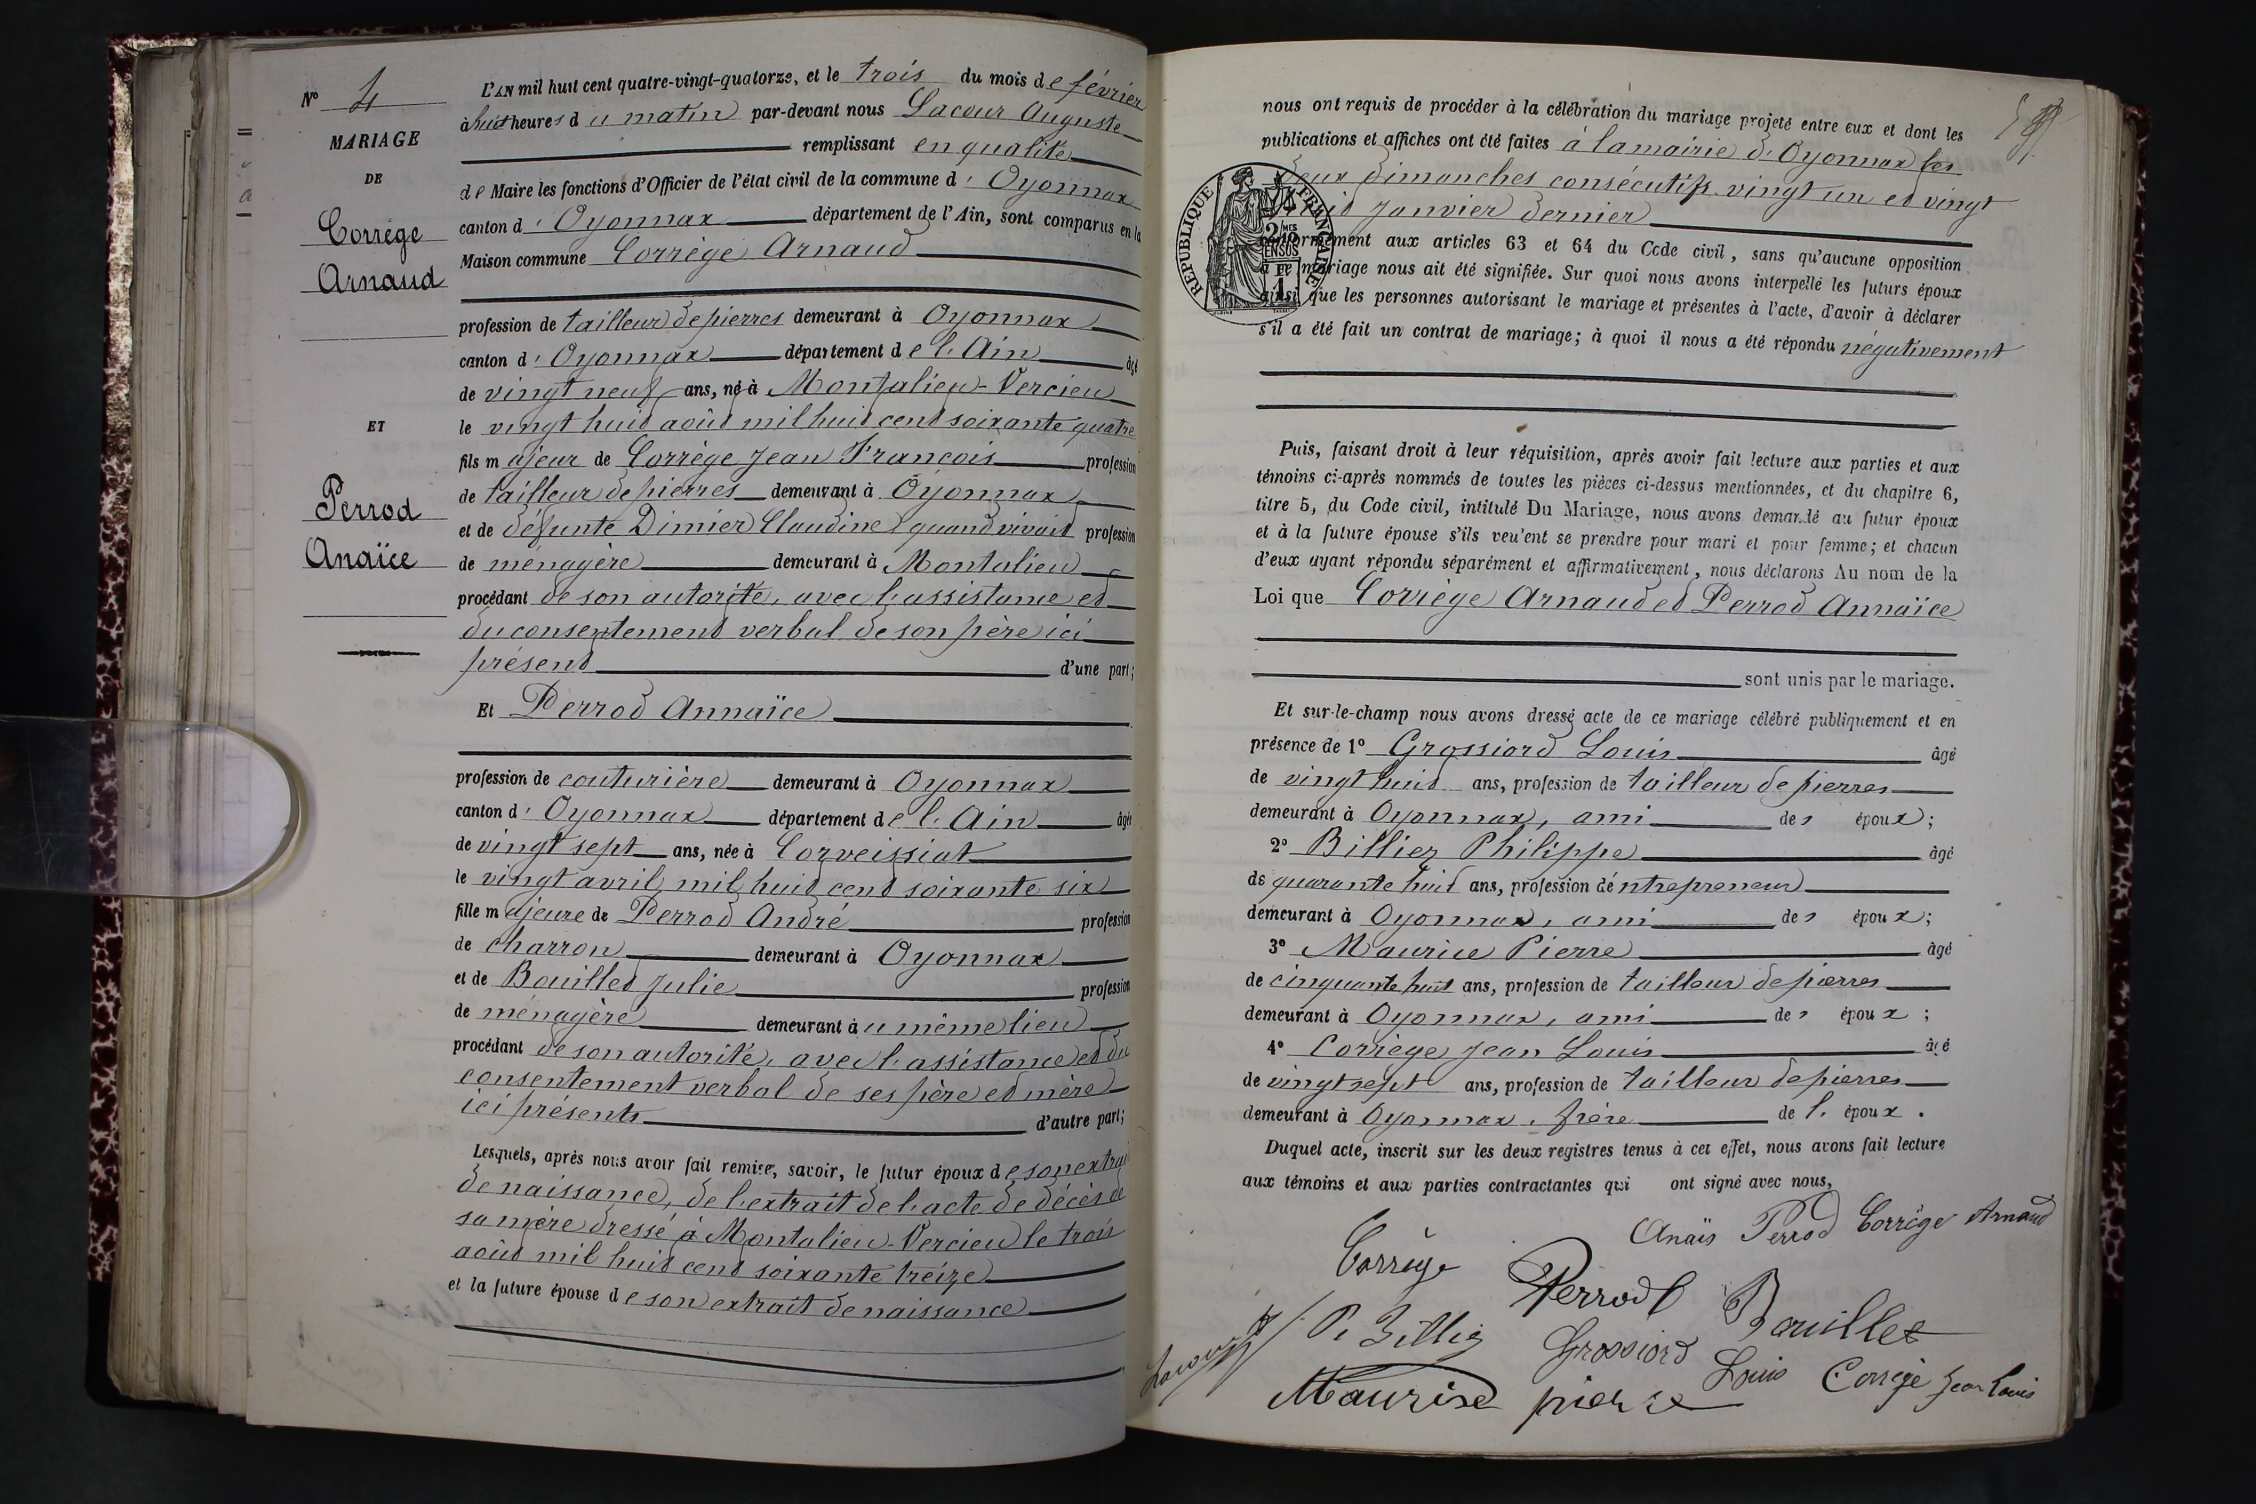 N° 4
MARIAGE
DE
Corrège
Arnaud
ET
Perrod
Anaïce
L'AN mil huit cent quatre-vingt-quatorze, et le trois du mois de février
à huit heures du matin par-devant nous Lacour Auguste
remplissant en qualité
de Maire les fonctions d'Officier de l'état civil de la commune d' Oyonnax
canton d' Oyonnax département de l'Ain, sont comparus en la
Maison commune Corrège Arnaud
profession de tailleur de pierres demeurant à Oyonnax
canton d' Oyonnax département de l'Ain âgé
de vingt neuf ans, né à Montalieu-Vercieu
le vingt huit août mil huit cent soixante quatre
fils majeur de Corrège Jean François profession
de tailleur de pierres demeurant à Oyonnax
et de défunte Dimier Claudine quand vivait profession
de ménagère demeurant à Montalieu
procédant de son autorité, avec l'assistance et
du consentement verbal de son père ici
présent d'une part;
Et Perrod Annaïce
profession de couturière demeurant à Oyonnax
canton d' Oyonnax département de l'Ain âgée
de vingt sept ans, née à Corveissiat
le vingt avril mil huit cent soixante six
fille majeure de Perrod André profession
de charron demeurant à Oyonnax
et de Bouillet Julie profession
de ménagère demeurant au même lieu
procédant de son autorité, avec l'assistance et du
consentement verbal de ses père et mère
ici présents d'autre part;
Lesquels, après nous avoir fait remise, savoir, le futur époux de son extrait
de naissance, de l'extrait de l'acte de décès de
sa mère dressé à Montalieu-Vercieu le trois
août mil huit cent soixante treize
et la future épouse de son extrait de naissance
nous ont requis de procéder à la célébration du mariage projeté entre eux et dont les
publications et affiches ont été faites à la mairie d'Oyonnax les
deux dimanches consécutifs vingt un et vingt
huit janvier dernier
conformément aux articles 63 et 64 du Code civil, sans qu'aucune opposition
à ce mariage nous ait été signifiée. Sur quoi nous avons interpellé les futurs époux
ainsi que les personnes autorisant le mariage et présentes à l'acte, d'avoir à déclarer
s'il a été fait un contrat de mariage; à quoi il nous a été répondu négativement
RÉPUBLIQUE FRANÇAISE
Puis, faisant droit à leur réquisition, après avoir fait lecture aux parties et aux
témoins ci-après nommés de toutes les pièces ci-dessus mentionnées, et du chapitre 6,
titre 5, du Code civil, intitulé Du Mariage, nous avons demandé au futur époux
et à la future épouse s'ils veulent se prendre pour mari et pour femme; et chacun
d'eux ayant répondu séparément et affirmativement, nous déclarons Au nom de la
Loi que Corrège Arnaud et Perrod Annaïce
sont unis par le mariage.
Et sur-le-champ nous avons dressé acte de ce mariage célébré publiquement et en
présence de 1° Grossiord Louis âgé
de vingt huit ans, profession de tailleur de pierres
demeurant à Oyonnax, ami des époux;
2° Billiez Philippe âgé
de quarante huit ans, profession d'entrepreneur
demeurant à Oyonnax, ami des époux;
3° Maurice Pierre âgé
de cinquante huit ans, profession de tailleur de pierres
demeurant à Oyonnax, ami des époux;
4° Corrège Jean Louis âgé
de vingt sept ans, profession de tailleur de pierres
demeurant à Oyonnax, frère de l'époux.
Duquel acte, inscrit sur les deux registres tenus à cet effet, nous avons fait lecture
aux témoins et aux parties contractantes qui ont signé avec nous,
Anaïs Perrod Corrège Arnaud
Corrège Perrod Bouillet
Lacour P. Billiez Grossiord Louis Corrège Jean Louis
Maurise pierre